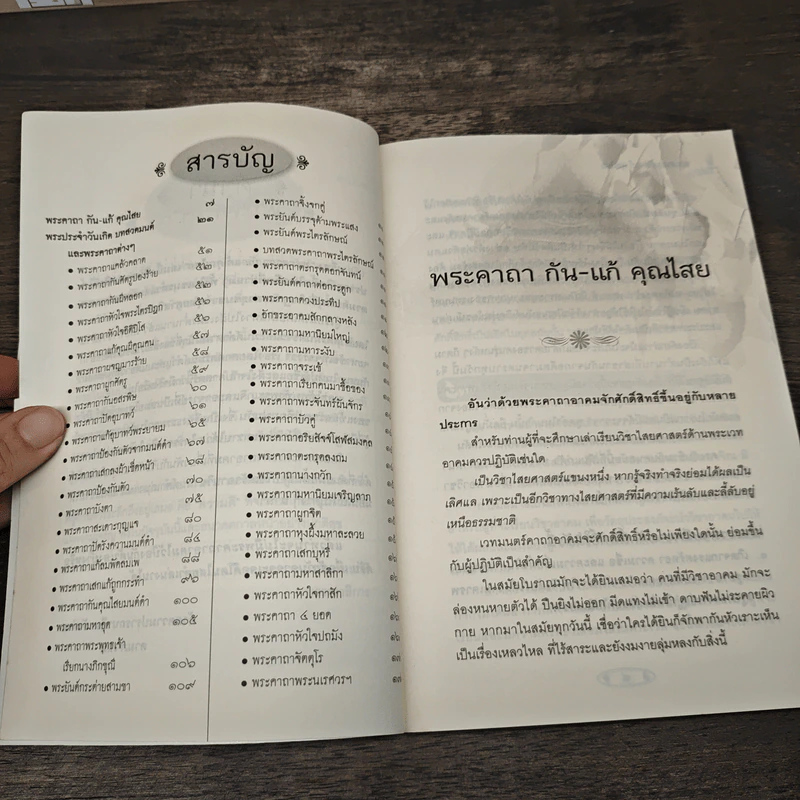 สารบัญ
พระคาถา กัน-แก้ คุณไสย ๗
พระประจำวันเกิด บทสวดมนต์ ๒๑
และพระคาถาต่างๆ
• พระคาถาแคล้วคลาด ๕๑
• พระคาถากันศัตรูปองร้าย ๕๒
• พระคาถากันผีหลอก ๕๒
• พระคาถาหัวใจพระไตรปิฎก ๕๖
• พระคาถาหัวใจอิติปิโส ๕๖
• พระคาถาแก้คุณผีคุณคน ๕๗
• พระคาถาผจญมารร้าย ๕๘
• พระคาถาผูกศัตรู ๕๙
• พระคาถากันอสรพิษ ๖๐
• พระคาถาปิดอุบาทว์ ๖๑
• พระคาถาแก้อุบาทว์พระยายม ๖๕
• พระคาถาป้องกันตัวจากมนต์ดำ ๖๗
• พระคาถาเสกสงผ้าเช็ดหน้า ๖๘
• พระคาถาป้องกันตัว ๗๐
• พระคาถาบังตา ๗๕
• พระคาถาสะเดาะกุญแจ ๘๐
• พระคาถาปัดรังควานมนต์ดำ ๘๔
• พระคาถาแก้ลมพัดลมเพ ๘๘
• พระคาถาเสกแก้ถูกกระทำ ๙๖
• พระคาถากันคุณไสยมนต์ดำ ๑๐๐
• พระคาถามหาอุด ๑๐๕
• พระคาถาพระพุทธเจ้า
เรียกนางภิกขุณี ๑๐๖
• พระยันต์กระต่ายสามขา ๑๐๙
• พระคาถาจิ้งจกคู่
• พระยันต์บรรจุด้ามพระแสง
• พระยันต์พระไตรลักษณ์
• บทสวดพระคาถาพระไตรลักษณ์
• พระคาถาตะกรุดดอกจันทน์
• พระยันต์คาถาต่อกระดูก
• พระคาถาดวงประทีป
• อักขระอาคมสักกลางหลัง
• พระคาถามหานิยมใหญ่
• พระคาถามหาระงับ
• พระคาถาจระเข้
• พระคาถาเรียกคนมาซื้อของ
• พระคาถาพระจันทร์ผันจักร
• พระคาถาบัวคู่
• พระคาถาอริยสัจจ์โสฬสมงคล
• พระคาถาตะกรุดลงถม
• พระคาถานางกวัก
• พระคาถามหานิยมเจริญลาภ
• พระคาถาผูกจิต
• พระคาถาหุงผึ้งมหาละลวย
• พระคาถาเสกบุหรี่
• พระคาถามหาสาลิกา
• พระคาถาหัวใจกาสัก
• พระคาถา ๔ ยอด
• พระคาถาหัวใจปถมัง
• พระคาถาจัตตุโร
• พระคาถาพระนเรศวรฯ
พระคาถา กัน-แก้ คุณไสย
อันว่าด้วยพระคาถาอาคมจักศักดิ์สิทธิ์ขึ้นอยู่กับหลาย
ประการ
สำหรับท่านผู้ที่จะศึกษาเล่าเรียนวิชาไสยศาสตร์ด้านพระเวท
อาคมควรปฏิบัติเช่นใด
เป็นวิชาไสยศาสตร์แขนงหนึ่ง หากรู้จริงทำจริงย่อมได้ผลเป็น
เลิศแล เพราะเป็นอีกวิชาทางไสยศาสตร์ที่มีความเร้นลับและลี้ลับอยู่
เหนือธรรมชาติ
เวทมนตร์คาถาอาคมจะศักดิ์สิทธิ์หรือไม่เพียงใดนั้น ย่อมขึ้น
กับผู้ปฏิบัติเป็นสำคัญ
ในสมัยโบราณมักจะได้ยินเสมอว่า คนที่มีวิชาอาคม มักจะ
ล่องหนหายตัวได้ ปืนยิงไม่ออก มีดแทงไม่เข้า ดาบฟันไม่ระคายผิว
กาย หากมาในสมัยทุกวันนี้ เชื่อว่าใครได้ยินก็จักพากันหัวเราะเห็น
เป็นเรื่องเหลวไหล ที่ไร้สาระและยังงมงายลุ่มหลงกับสิ่งนี้